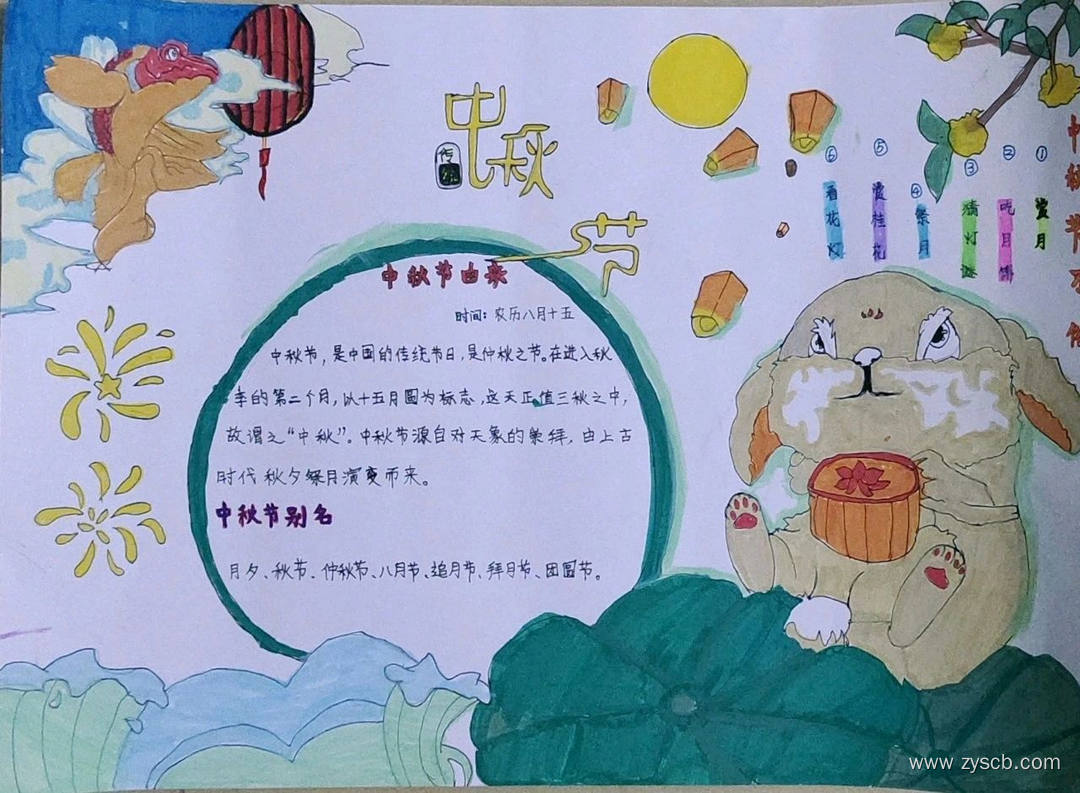 中秋节
传统
中秋节由来
时间：农历八月十五
中秋节，是中国的传统节日，是仲秋之节。在进入秋
季的第二个月，以十五月圆为标志，这天正值三秋之中，
故谓之“中秋”。中秋节源自对天象的崇拜，由上古
时代秋夕祭月演变而来。
中秋节别名
月夕、秋节、仲秋节、八月节、追月节、拜月节、团圆节。
中秋节习俗
①赏月
②吃月饼
③猜灯谜
④祭月
⑤赏桂花
⑥看花灯
www.zyscb.com